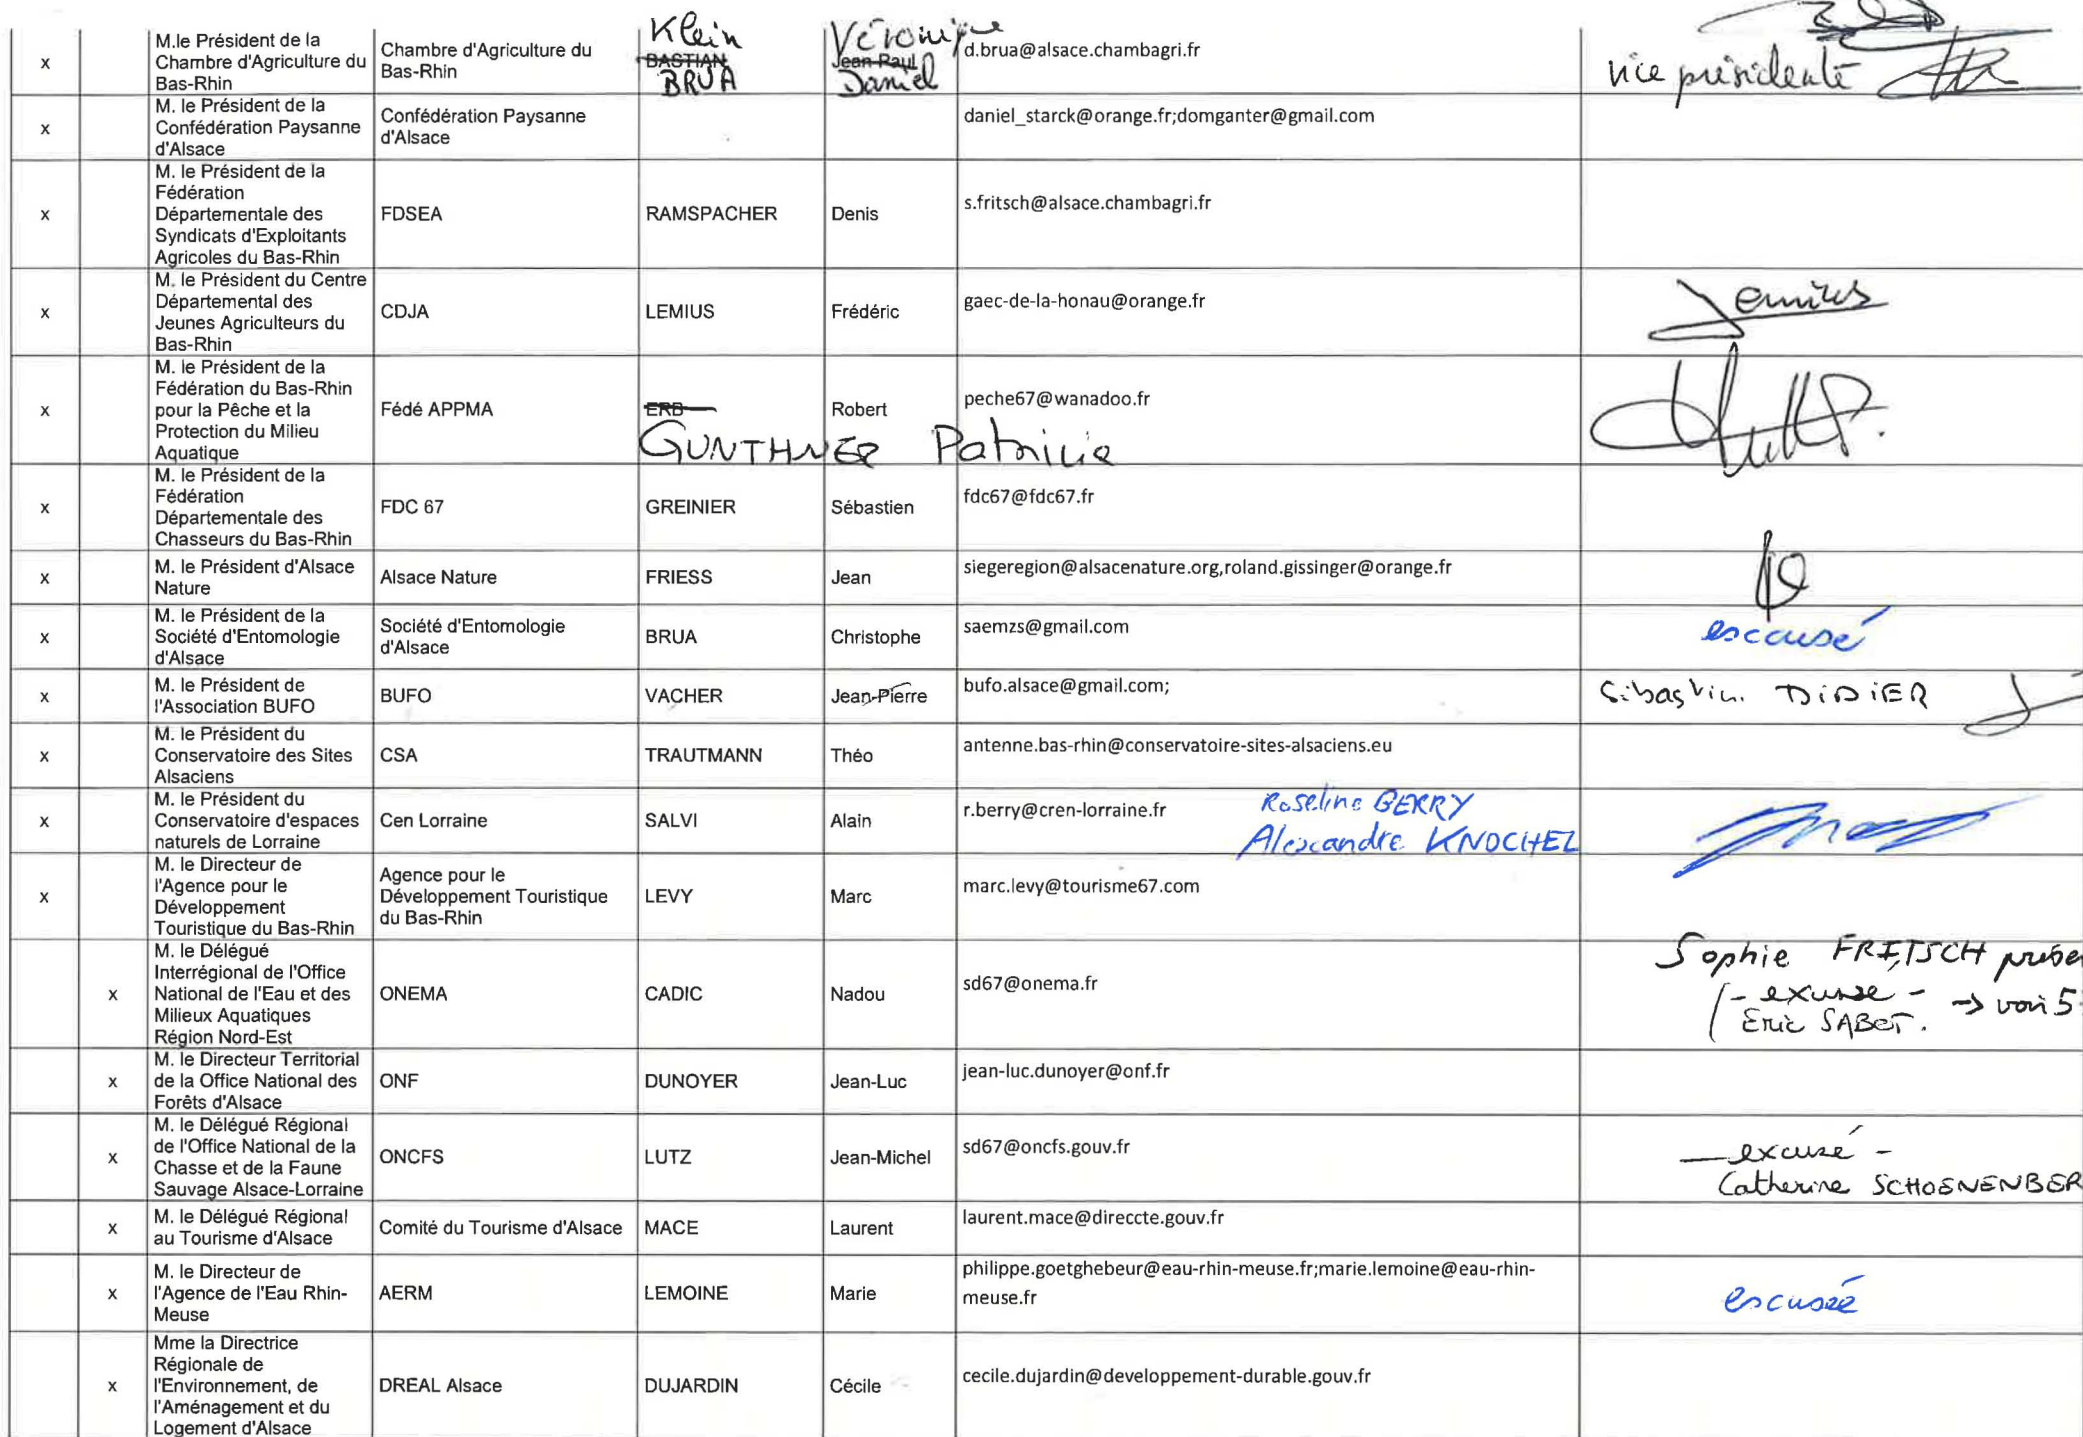 Klein Véronique
x M.le Président de la Chambre d'Agriculture du Bas-Rhin Chambre d'Agriculture du Bas-Rhin BASTIAN Jean Paul d.brua@alsace.chambagri.fr vice présidente
BRUA Daniel
x M. le Président de la Confédération Paysanne d'Alsace Confédération Paysanne d'Alsace daniel_starck@orange.fr;domganter@gmail.com
x M. le Président de la Fédération Départementale des Syndicats d'Exploitants Agricoles du Bas-Rhin FDSEA RAMSPACHER Denis s.fritsch@alsace.chambagri.fr
x M. le Président du Centre Départemental des Jeunes Agriculteurs du Bas-Rhin CDJA LEMIUS Frédéric gaec-de-la-honau@orange.fr
x M. le Président de la Fédération du Bas-Rhin pour la Pêche et la Protection du Milieu Aquatique Fédé APPMA ERB Robert peche67@wanadoo.fr
GUNTHNER Patricia
x M. le Président de la Fédération Départementale des Chasseurs du Bas-Rhin FDC 67 GREINIER Sébastien fdc67@fdc67.fr
x M. le Président d'Alsace Nature Alsace Nature FRIESS Jean siegeregion@alsacenature.org,roland.gissinger@orange.fr
x M. le Président de la Société d'Entomologie d'Alsace Société d'Entomologie d'Alsace BRUA Christophe saemzs@gmail.com excusé
x M. le Président de l'Association BUFO BUFO VACHER Jean-Pierre bufo.alsace@gmail.com; DiDiER
x M. le Président du Conservatoire des Sites Alsaciens CSA TRAUTMANN Théo antenne.bas-rhin@conservatoire-sites-alsaciens.eu
x M. le Président du Conservatoire d'espaces naturels de Lorraine Cen Lorraine SALVI Alain r.berry@cren-lorraine.fr Roseline BERRY
Alexandre KNOCHEL
x M. le Directeur de l'Agence pour le Développement Touristique du Bas-Rhin Agence pour le Développement Touristique du Bas-Rhin LEVY Marc marc.levy@tourisme67.com
x M. le Délégué Interrégional de l'Office National de l'Eau et des Milieux Aquatiques Région Nord-Est ONEMA CADIC Nadou sd67@onema.fr Sophie FRITSCH
- excuse - → voir 5
Eric SABOT.
x M. le Directeur Territorial de la Office National des Forêts d'Alsace ONF DUNOYER Jean-Luc jean-luc.dunoyer@onf.fr
x M. le Délégué Régional de l'Office National de la Chasse et de la Faune Sauvage Alsace-Lorraine ONCFS LUTZ Jean-Michel sd67@oncfs.gouv.fr - excusé -
Catherine SCHOENENBER
x M. le Délégué Régional au Tourisme d'Alsace Comité du Tourisme d'Alsace MACE Laurent laurent.mace@direccte.gouv.fr
x M. le Directeur de l'Agence de l'Eau Rhin-Meuse AERM LEMOINE Marie philippe.goetghebeur@eau-rhin-meuse.fr;marie.lemoine@eau-rhin-meuse.fr excusée
x Mme la Directrice Régionale de l'Environnement, de l'Aménagement et du Logement d'Alsace DREAL Alsace DUJARDIN Cécile cecile.dujardin@developpement-durable.gouv.fr